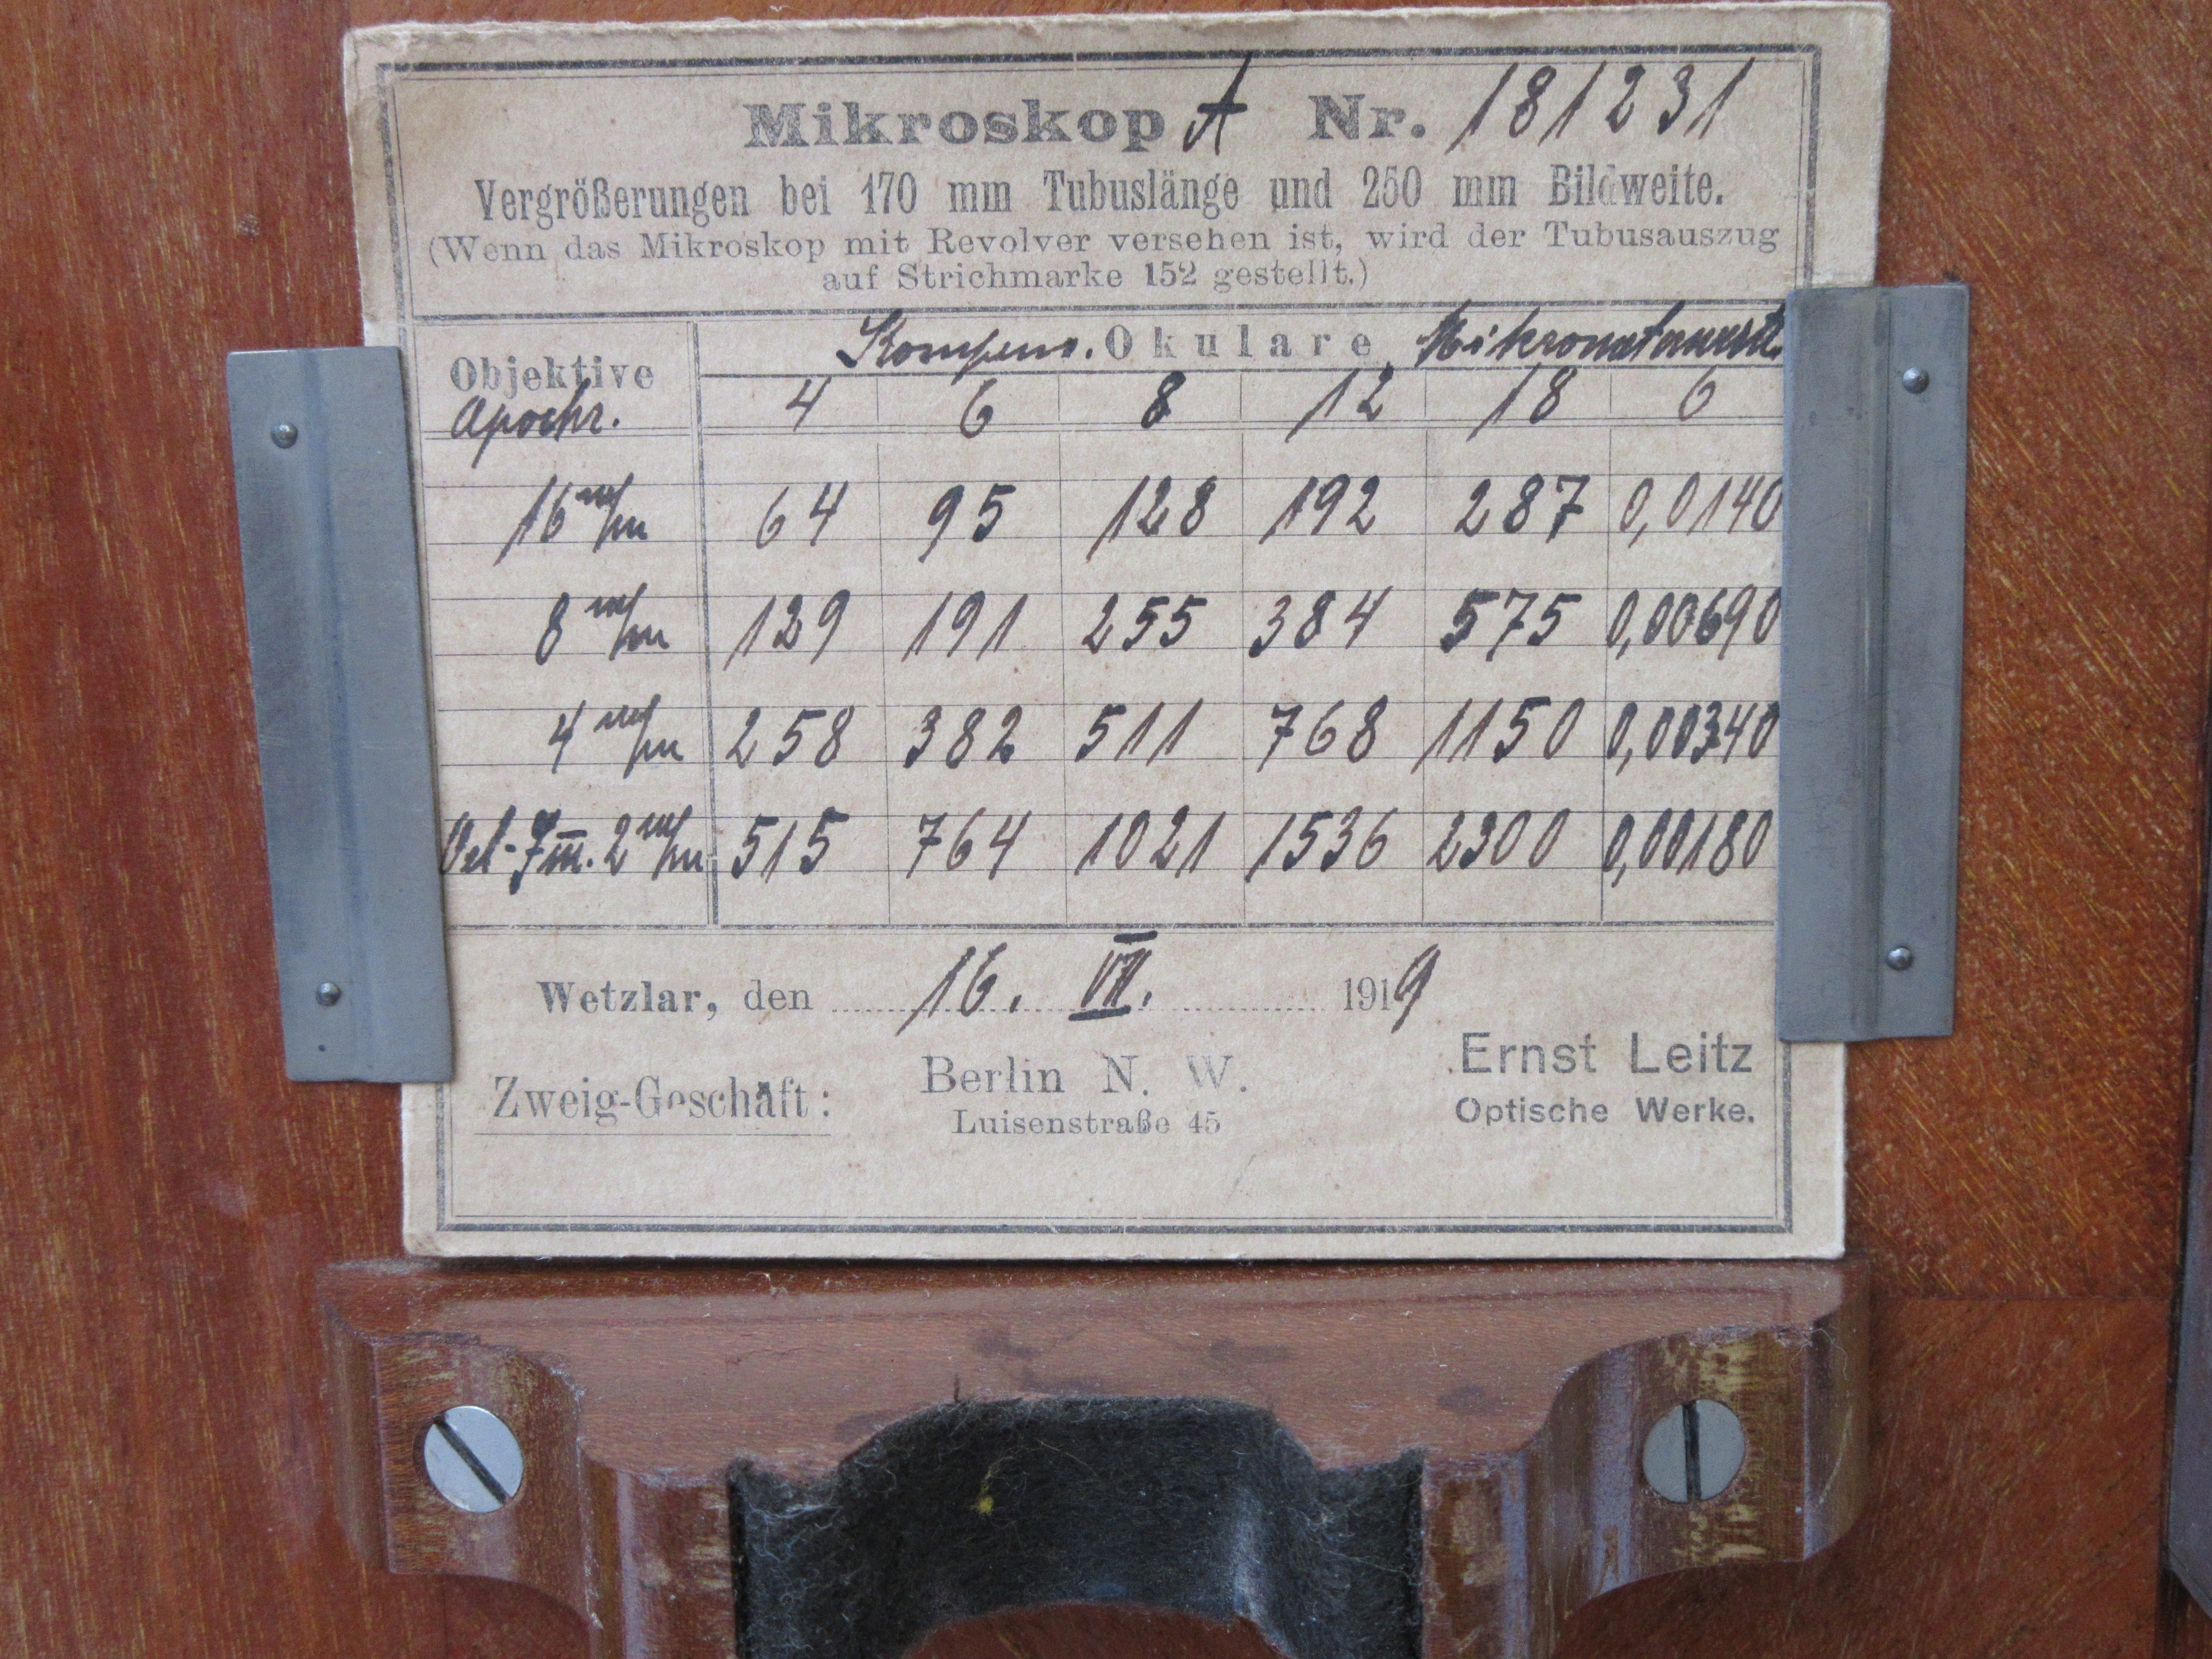 Mikroskop A Nr. 181231
Vergrößerungen bei 170 mm Tubuslänge und 250 mm Bildweite.
(Wenn das Mikroskop mit Revolver versehen ist, wird der Tubusauszug
auf Strichmarke 152 gestellt.)
Objektive Kompens. Okulare
Apochr. 4 6 8 12 18 6
16 m/m 64 95 128 192 287 0,0140
8 m/m 129 191 255 384 575 0,00690
4 m/m 258 382 511 768 1150 0,00340
Oel-Im. 2 m/m 515 764 1021 1536 2300 0,00180
Wetzlar, den 16. VII. 1919
Zweig-Geschäft: Berlin N. W. Ernst Leitz
Luisenstraße 45 Optische Werke.